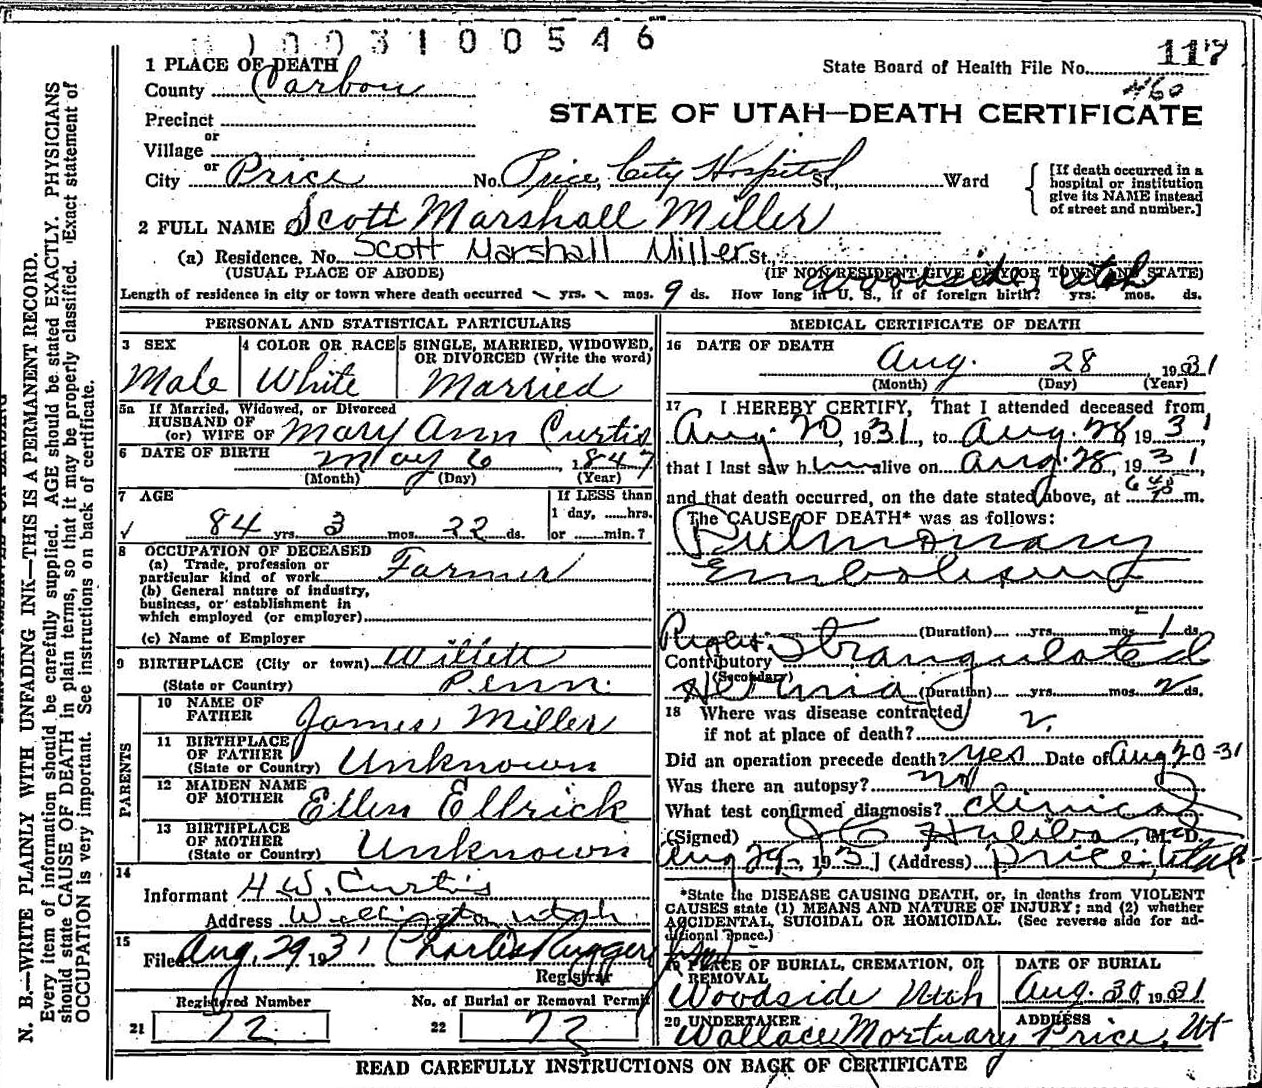 1003100546
1 PLACE OF DEATH
County Carbon
State Board of Health File No. 117
460
STATE OF UTAH—DEATH CERTIFICATE
Precinct
or
Village
or
City Price No. Price City Hospital St., Ward
[If death occurred in a hospital or institution give its NAME instead of street and number.]
2 FULL NAME Scott Marshall Miller
(a) Residence. No. Scott Marshall Miller St., Woodside, Utah
(USUAL PLACE OF ABODE) (IF NON-RESIDENT GIVE CITY OR TOWN AND STATE)
Length of residence in city or town where death occurred yrs. mos. 9 ds. How long in U. S., if of foreign birth? yrs. mos. ds.
PERSONAL AND STATISTICAL PARTICULARS
3 SEX
Male
4 COLOR OR RACE
White
5 SINGLE, MARRIED, WIDOWED, OR DIVORCED (Write the word)
Married
5a If Married, Widowed, or Divorced
HUSBAND OF
(or) WIFE OF Mary Ann Curtis
6 DATE OF BIRTH May 6, 1847
(Month) (Day) (Year)
7 AGE
84 yrs. 3 mos. 22 ds.
If LESS than
1 day, hrs.
or min.?
8 OCCUPATION OF DECEASED
(a) Trade, profession or
particular kind of work Farmer
(b) General nature of industry,
business, or establishment in
which employed (or employer)
(c) Name of Employer
9 BIRTHPLACE (City or town) Willett
(State or Country) Penn.
PARENTS
10 NAME OF
FATHER James Miller
11 BIRTHPLACE
OF FATHER
(State or Country) Unknown
12 MAIDEN NAME
OF MOTHER Ellen Ellrick
13 BIRTHPLACE
OF MOTHER
(State or Country) Unknown
14
Informant H. W. Curtis
Address Wellington Utah
15
Filed Aug. 29 1931 Charles Ruggeri
Registrar
Registered Number
21 72
No. of Burial or Removal Permit
22 72
MEDICAL CERTIFICATE OF DEATH
16 DATE OF DEATH
Aug. 28 1931
(Month) (Day) (Year)
17 I HEREBY CERTIFY, That I attended deceased from
Aug. 20, 1931, to Aug. 28 1931,
that I last saw him alive on Aug. 28, 1931,
and that death occurred, on the date stated above, at 6 40 m.
The CAUSE OF DEATH* was as follows:
Pulmonary
Embolism
(Duration) yrs. mos. 1 ds.
Contributory Right Strangulated
(Secondary)
Hernia (Duration) yrs. mos. 2 ds.
18 Where was disease contracted
if not at place of death?
Did an operation precede death? yes Date of Aug 20-31
Was there an autopsy? no
What test confirmed diagnosis? clinical
(Signed) M. D.
Aug 29, 1931 (Address) Price, Utah
*State the DISEASE CAUSING DEATH, or, in deaths from VIOLENT
CAUSES state (1) MEANS AND NATURE OF INJURY; and (2) whether
ACCIDENTAL, SUICIDAL OR HOMICIDAL. (See reverse side for ad-
ditional space.)
19 PLACE OF BURIAL, CREMATION, OR
REMOVAL
Woodside Utah
DATE OF BURIAL
Aug. 30, 1931
20 UNDERTAKER
Wallace Mortuary
ADDRESS
Price, Ut
READ CAREFULLY INSTRUCTIONS ON BACK OF CERTIFICATE
N. B.—WRITE PLAINLY WITH UNFADING INK—THIS IS A PERMANENT RECORD.
Every item of information should be carefully supplied. AGE should be stated EXACTLY. PHYSICIANS
should state CAUSE OF DEATH in plain terms, so that it may be properly classified. Exact statement of
OCCUPATION is very important. See instructions on back of certificate.